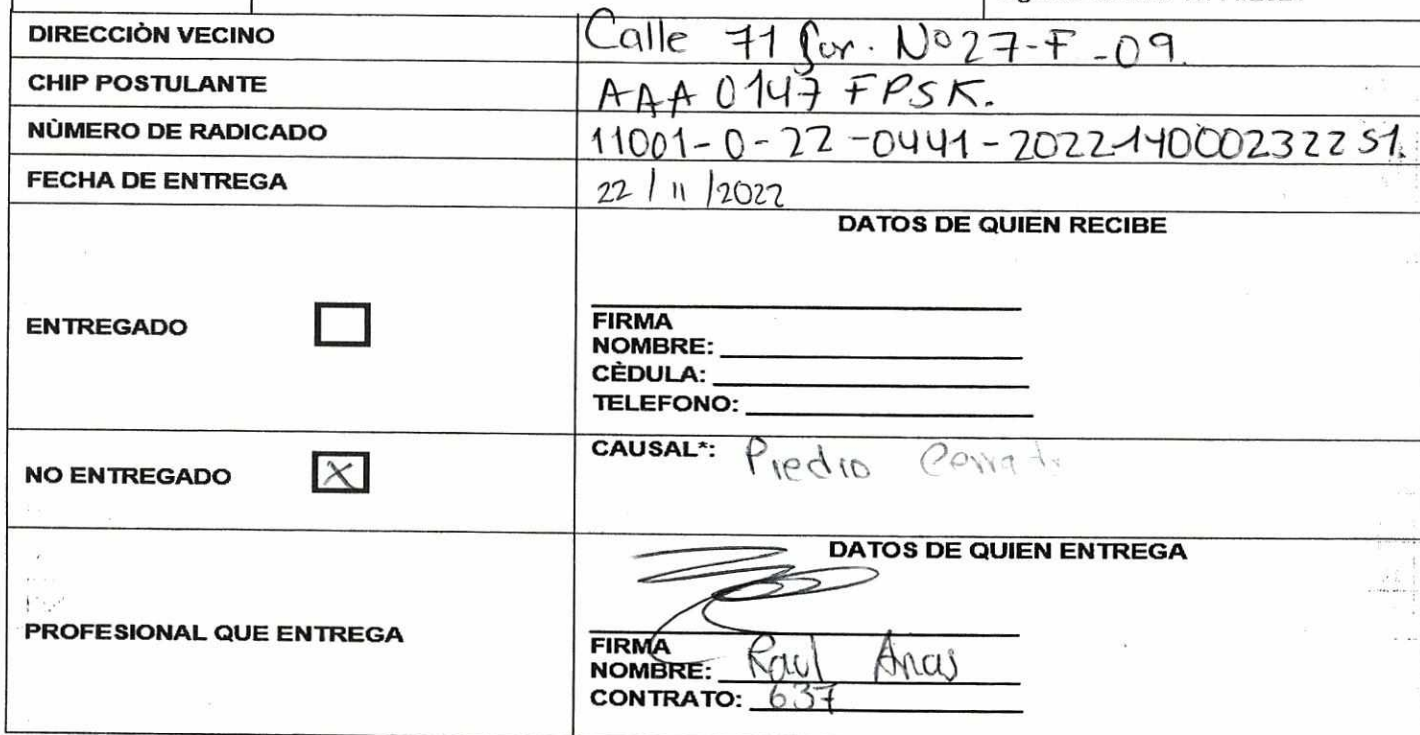 DIRECCIÒN VECINO Calle 71 Sur. Nº 27-F-09.
CHIP POSTULANTE AAA 0147 FPSK.
NÙMERO DE RADICADO 11001-0-22-0441-2022140002322 51.
FECHA DE ENTREGA 22/11/2022
DATOS DE QUIEN RECIBE
ENTREGADO
FIRMA
NOMBRE:
CÈDULA:
TELEFONO:
NO ENTREGADO X CAUSAL*: Predio Cerrado
DATOS DE QUIEN ENTREGA
PROFESIONAL QUE ENTREGA
FIRMA
NOMBRE: Raul Arias
CONTRATO: 637